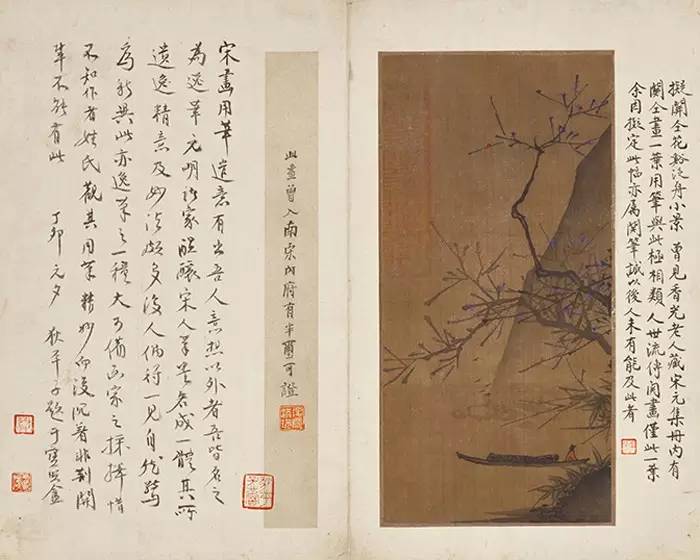 擬關仝花谿泛舟小景 曾見香光老人藏宋元集冊內有
關仝畫一葉用筆與此極相類人世流傳關畫僅此一葉
余因擬定此幅亦屬關筆誠以後人未有能及此者
此畫曾入南宋內府有半璽可證
宋畫用筆造意有出吾人意想以外者吾皆名之
為逸筆元明諸家醞釀宋人筆墨各成一體其所
遺逸精意及妙法頗多後人偶得一見自能驚
為新異此亦逸筆之一種大可備畫家之採擇惜
不知作者姓氏觀其用筆精妙而復沉著非荊關
輩不能有此 丁卯元夕 狄平子題于寶盦